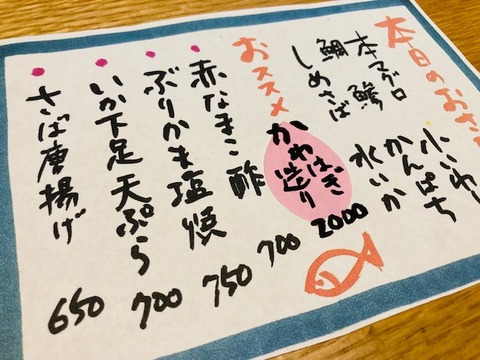 本日のおさ
本マグロ
小いわし
鯵
かんぱち
鯛
水いか
しめさば
おススメ
かわはぎ造り 2000
赤なまこ酢 700
ぶりかま塩焼 750
いか下足天ぷら 700
さば唐揚げ 650